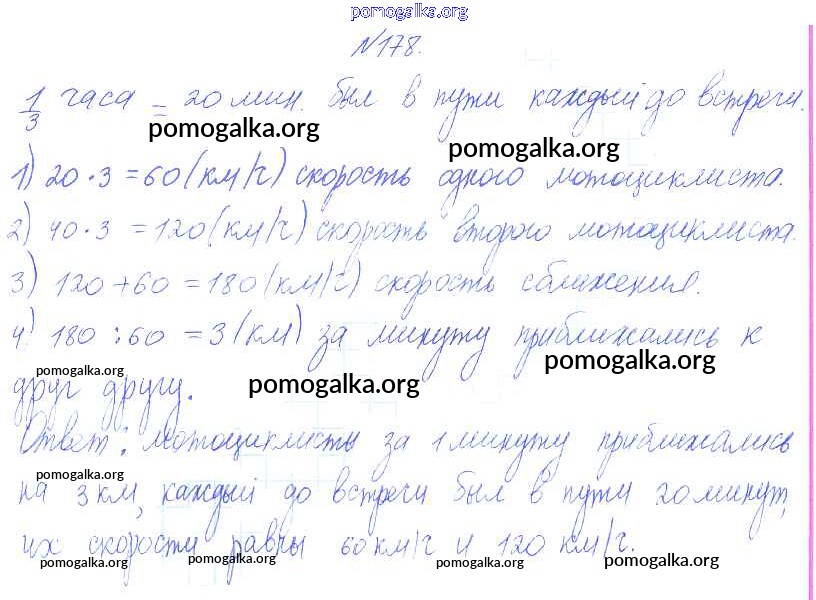 pomogalka.org
№178.
1/3 часа = 20 мин. был в пути каждый до встречи.
pomogalka.org
pomogalka.org
1) 20·3=60(км/ч) скорость одного мотоциклиста.
2) 40·3=120(км/ч) скорость второго мотоциклиста.
3) 120+60=180(км/ч) скорость сближения.
4) 180:60=3(км) за минуту приближались к
pomogalka.org
pomogalka.org
pomogalka.org
друг другу.
Ответ: мотоциклисты за 1 минуту приближались
pomogalka.org
на 3 км, каждый до встречи был в пути 20 минут,
их скорости равны 60 км/ч и 120 км/ч.
pomogalka.org pomogalka.org pomogalka.org pomogalka.org